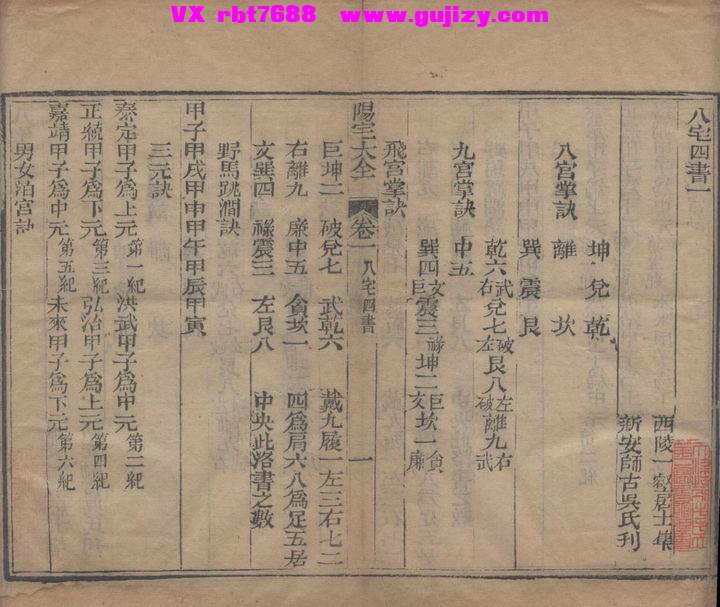 VX rbt7688 www.gujizy.com
八宅四書一
西陵一壑居士集
新安師古吳氏刊
坤 兌 乾
八宮掌訣 離 坎
巽 震 艮
乾六武右兌七破左艮八左破離九右武
九宮掌訣 中五
巽四文巨震三祿坤二巨文坎一貪廉
飛宮掌訣
陽宅大全 卷一 八宅四書 一
巨坤二 破兌七 武乾六 戴九履一左三右七二
右離九 廉中五 貪坎一 四為肩六八為足五居
文巽四 祿震三 左艮八 中央此洛書之數
野馬跳澗訣
甲子甲戌甲申甲午甲辰甲寅
三元訣
泰定甲子為上元第一紀 洪武甲子為中元第二紀
正統甲子為下元第三紀 弘治甲子為上元第四紀
嘉靖甲子為中元第五紀 未來甲子為下元第六紀
男女泊宮訣